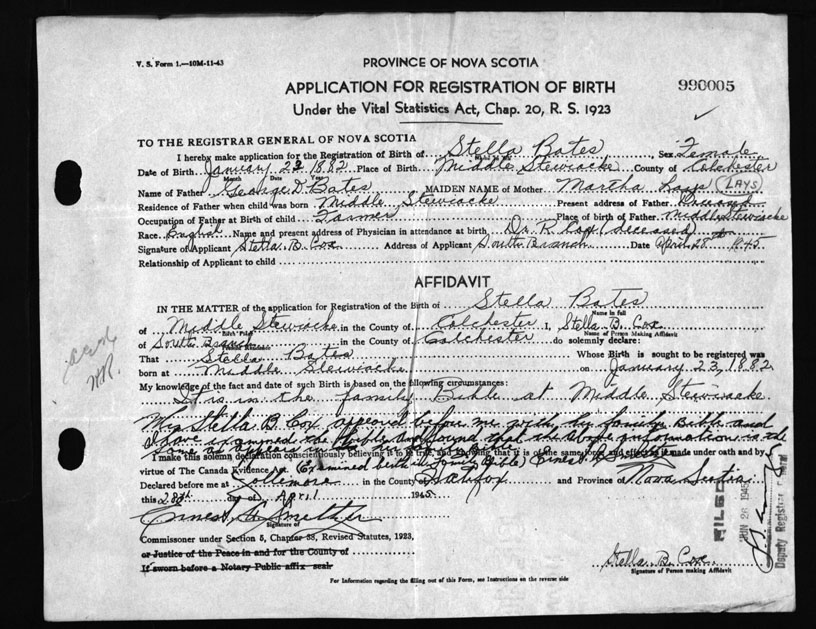 V. S. Form 1.—10M-11-43
PROVINCE OF NOVA SCOTIA
APPLICATION FOR REGISTRATION OF BIRTH
990005
Under the Vital Statistics Act, Chap. 20, R. S. 1923
TO THE REGISTRAR GENERAL OF NOVA SCOTIA
I hereby make application for the Registration of Birth of Stella Bates, Sex Female
Date of Birth January 23 1882 Place of Birth Middle Stewiacke County of Colchester
Month Date Year
Name of Father George D. Bates MAIDEN NAME of Mother Martha (LAYS)
Residence of Father when child was born Middle Stewiacke Present address of Father
Occupation of Father at Birth of child Farmer Place of birth of Father Middle Stewiacke
Race English Name and present address of Physician in attendance at birth Dr. R. Cox (deceased)
Signature of Applicant Stella B. Cox Address of Applicant South Branch Date April 28th 1945
Relationship of Applicant to child
AFFIDAVIT
IN THE MATTER of the application for Registration of the Birth of Stella Bates
Name in full
of Middle Stewiacke in the County of Colchester I, Stella B. Cox
Name of Person Making Affidavit
of South Branch in the County of Colchester do solemnly declare:
That Stella Bates Whose Birth is sought to be registered was
born at Middle Stewiacke on January 23, 1882
My knowledge of the fact and date of such Birth is based on the following circumstances:
It is in the family Bible at Middle Stewiacke
Mrs Stella B Cox appeared before me with her family Bible and
I have examined the Bible and found that the above information is the
same as appears in the
I make this solemn declaration conscientiously believing it to be true, and knowing that it is of the same force and effect as if made under oath and by
virtue of The Canada Evidence Act. (Examined birth in Family Bible) Ernest
Declared before me at in the County Halifax and Province of Nova Scotia
this 28th day of April 1945
Ernest A Smeltzer
Signature of
Commissioner under Section 5, Chapter 38, Revised Statutes, 1923,
or Justice of the Peace in and for the County of
If sworn before a Notary Public affix seal
Stella B. Cox
Signature of Person making Affidavit
For Information regarding the filling out of this Form, see Instructions on the reverse side
FILED
JUN 26 1945
Deputy Registrar General